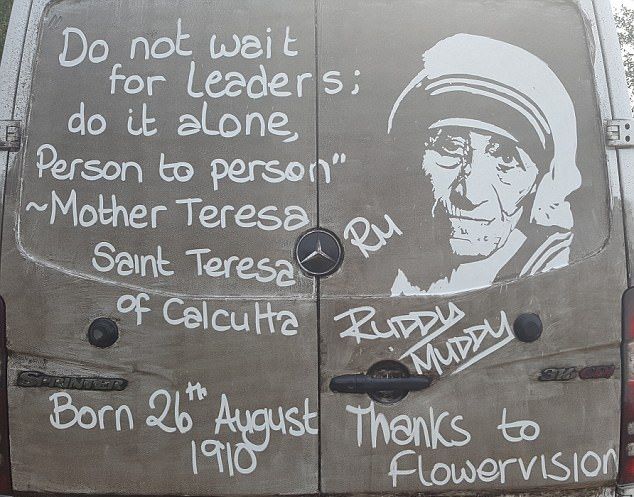 Do not wait
for leaders;
do it alone,
Person to person"
~Mother Teresa
Saint Teresa
of Calcutta
Born 26th August
1910
RM
RUDDY
MUDDY
Thanks to
flowervision
SPRINTER